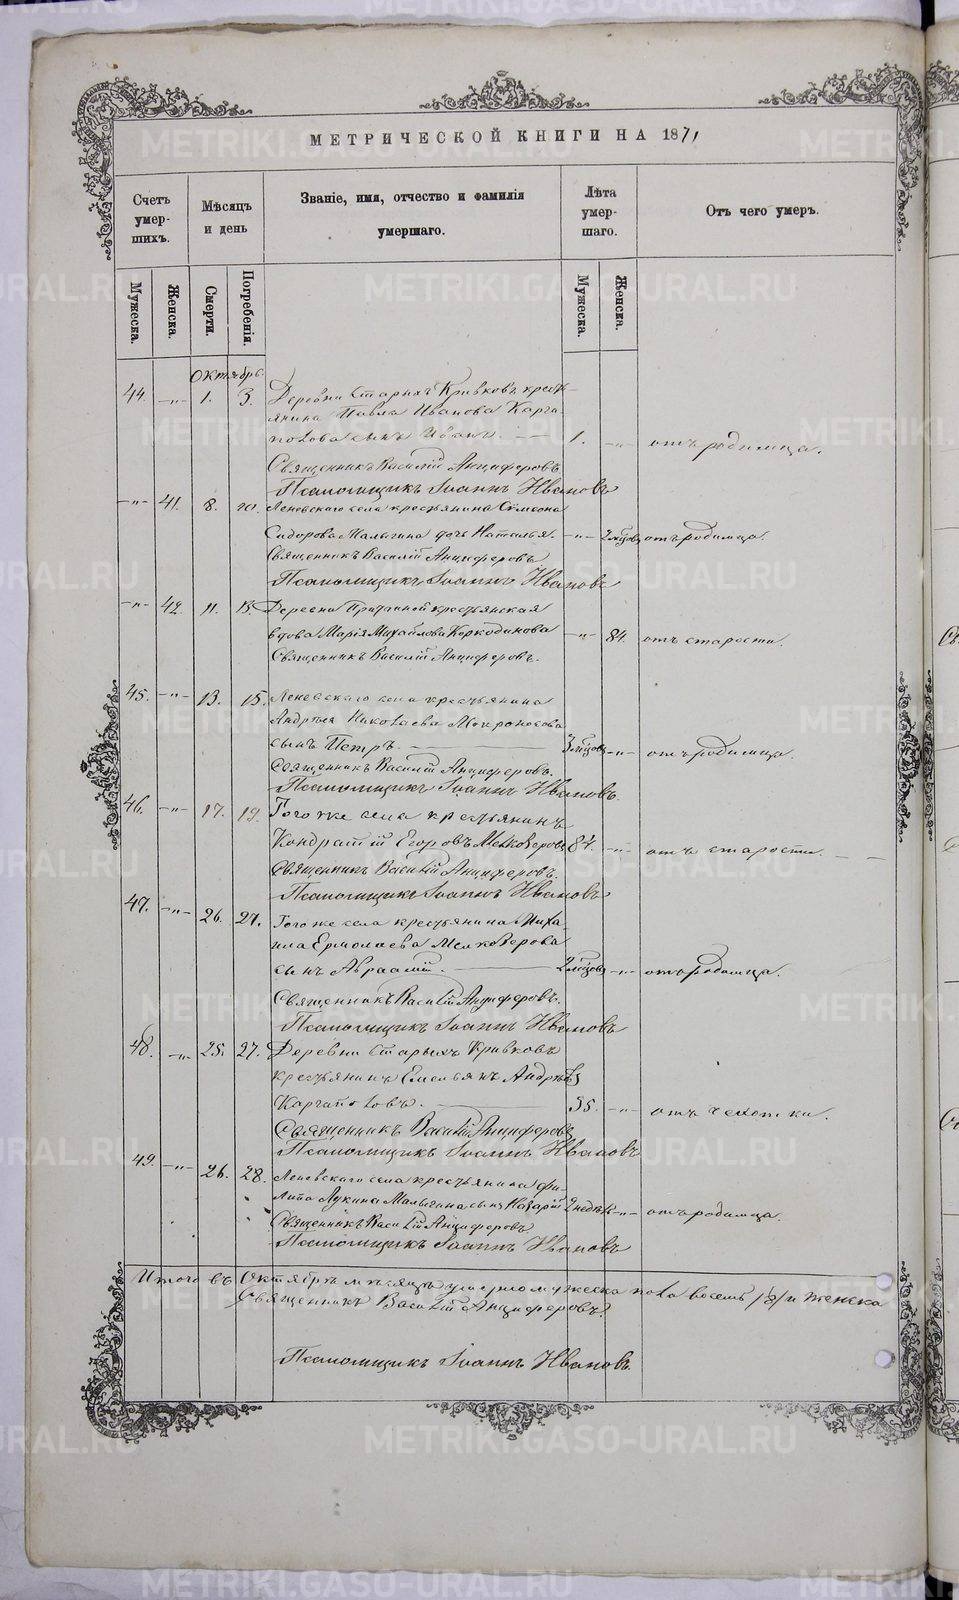 МЕТРИЧЕСКОЙ КНИГИ НА 1871
Счетъ умер- шихъ.
Мѣсяцъ и день
Званіе, имя, отчество и фамилія умершаго.
Лѣта умер- шаго.
Отъ чего умеръ.
Мужеска.
Женска.
Смерти.
Погребенія.
Мужеска.
Женска.
Октябрь.
44. -"- 1. 3. Деревни Старыхъ Кривковъ кресть-
янина Павла Иванова Карга-
полова сынъ Иванъ. — 1. -"- отъ родимца.
Священникъ Василій Анциферовъ
Псаломщикъ Іоаннъ Ивановъ
-"- 41. 8. 10. Леневскаго села крестьянина Симеона
Сидорова Малыгина дочь Наталья. -"- 2 мѣсяцъ отъ родимца.
Священникъ Василій Анциферовъ
Псаломщикъ Іоаннъ Ивановъ
-"- 42. 11. 13. Деревни крестьянская
вдова Марія Михайлова Коркодинова -"- 84. отъ старости.
Священникъ Василій Анциферовъ.
45. -"- 13. 15. Леневскаго села крестьянина
Андрея Николаева Мокроносова
сынъ Петръ. — 3 мѣсяцъ -"- отъ родимца.
Священникъ Василій Анциферовъ.
Псаломщикъ Іоаннъ Ивановъ.
46. -"- 17. 19. Того же села крестьянинъ
Кондратій Егоровъ Мелкозеровъ 84. -"- отъ старости.
Священникъ Василій Анциферовъ.
Псаломщикъ Іоаннъ Ивановъ
47. -"- 26. 27. Того же села крестьянина Миха-
ила Ермолаева Мелкозерова
сынъ Авраамій. — 2 мѣсяцъ -"- отъ родимца.
Священникъ Василій Анциферовъ.
Псаломщикъ Іоаннъ Ивановъ
48. -"- 25. 27. Деревни Старыхъ Кривковъ
крестьянинъ Емельянъ Андреевъ
Каргаполовъ. — 35. -"- отъ чахотки.
Священникъ Василій Анциферовъ
Псаломщикъ Іоаннъ Ивановъ
49. -"- 26. 28. Леневскаго села крестьянина Фи-
липа Лукина Малыгина сынъ Назарій 2 недѣл -"- отъ родимца.
Священникъ Василій Анциферовъ.
Псаломщикъ Іоаннъ Ивановъ
Итого въ Октябрѣ мѣсяцѣ умерло мужеска пола восемь /8/ и женска
Священникъ Василій Анциферовъ.
Псаломщикъ Іоаннъ Ивановъ.
METRIKI.GASO-URAL.RU